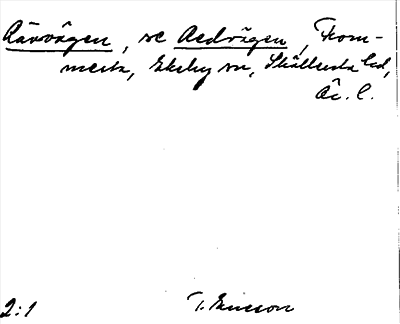 Rävvägen, se Aedvägen, From-
mesta, Ekeby sn, Skällersta hd,
Är. l.
2:1 T. Ericsson